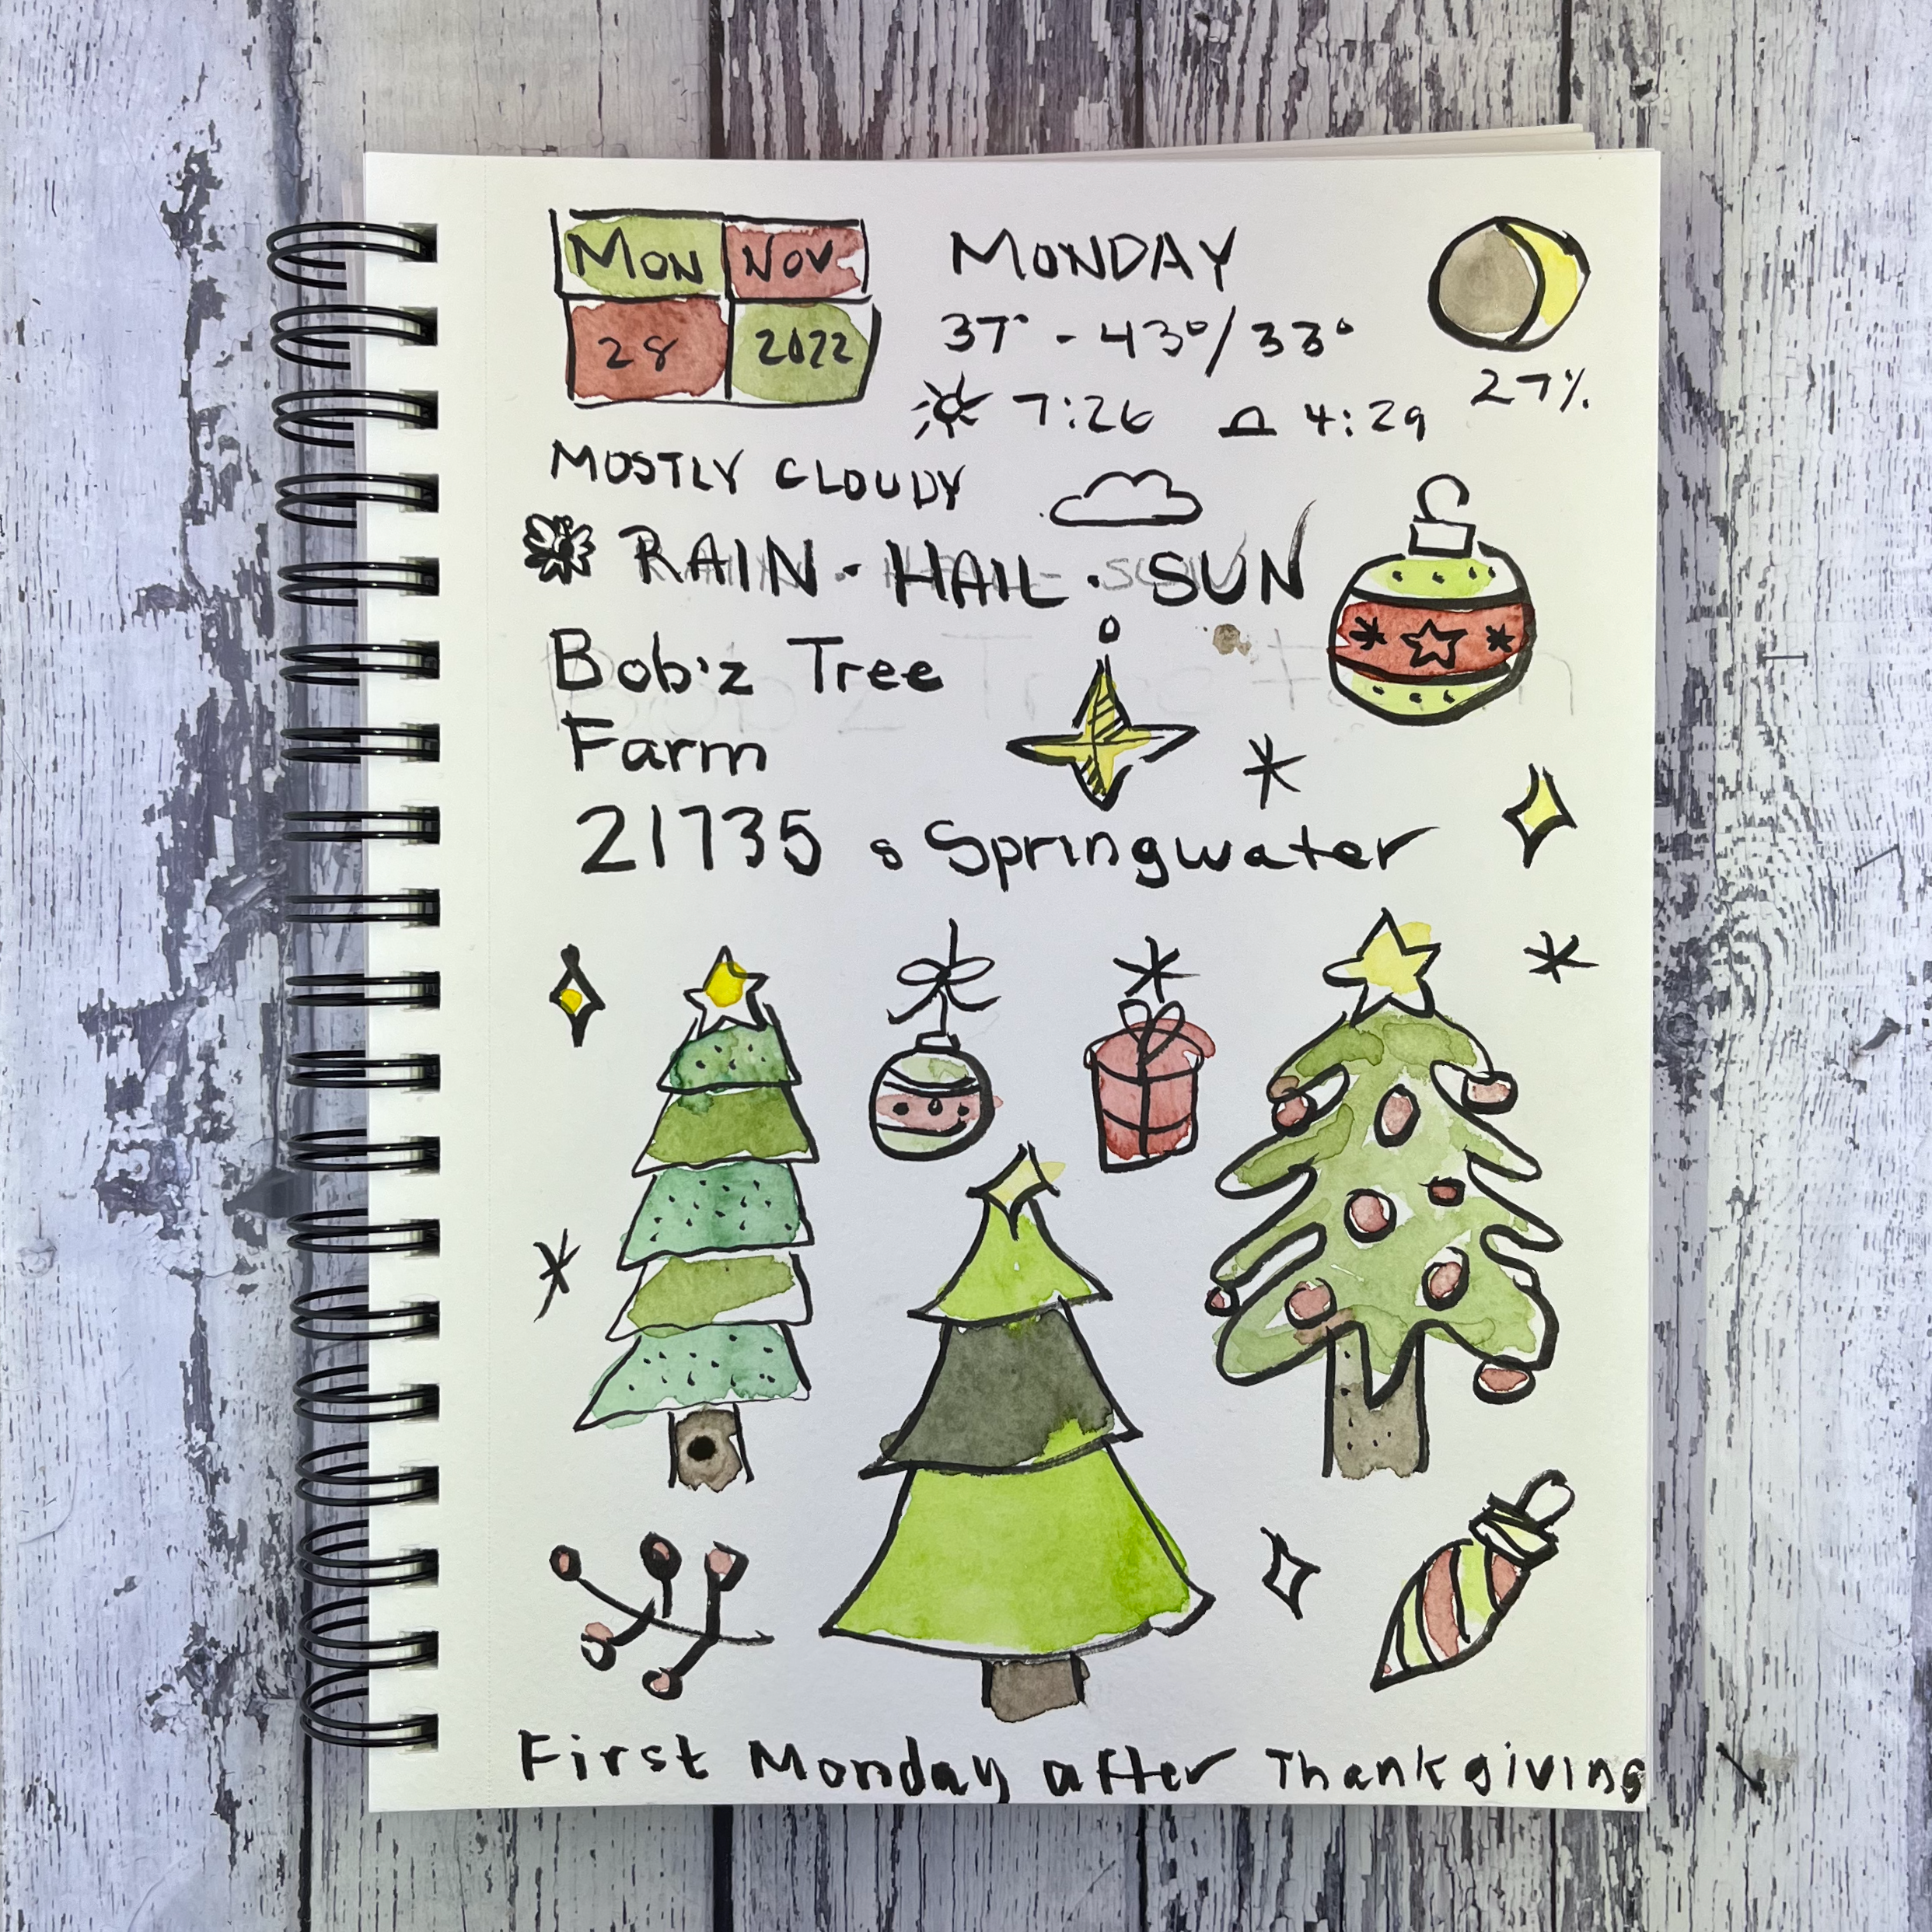 MON NOV
28 2022
MONDAY
37° - 43°/33°
7:26 4:29
27%
MOSTLY CLOUDY
RAIN · HAIL · SUN
Bob'z Tree
Farm
21735 s Springwater
First Monday after Thanksgiving